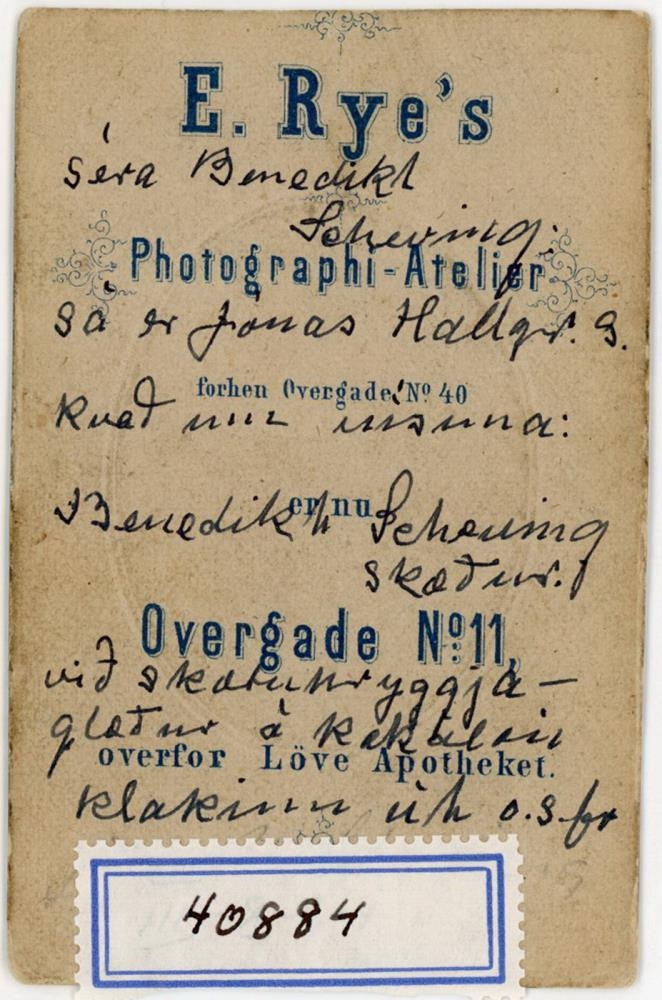 E. Rye's
séra Benedikt
Scheving.
Photographi-Atelier
sá er Jónas Hallgr. s.
forhen Overgade Nº 40
kvað um vísuna:
er nu
Benedikt Scheving
skæður.
Overgade Nº 11,
við
glaður á
overfor Löve Apotheket.
klakinn út o.s.fr
40884